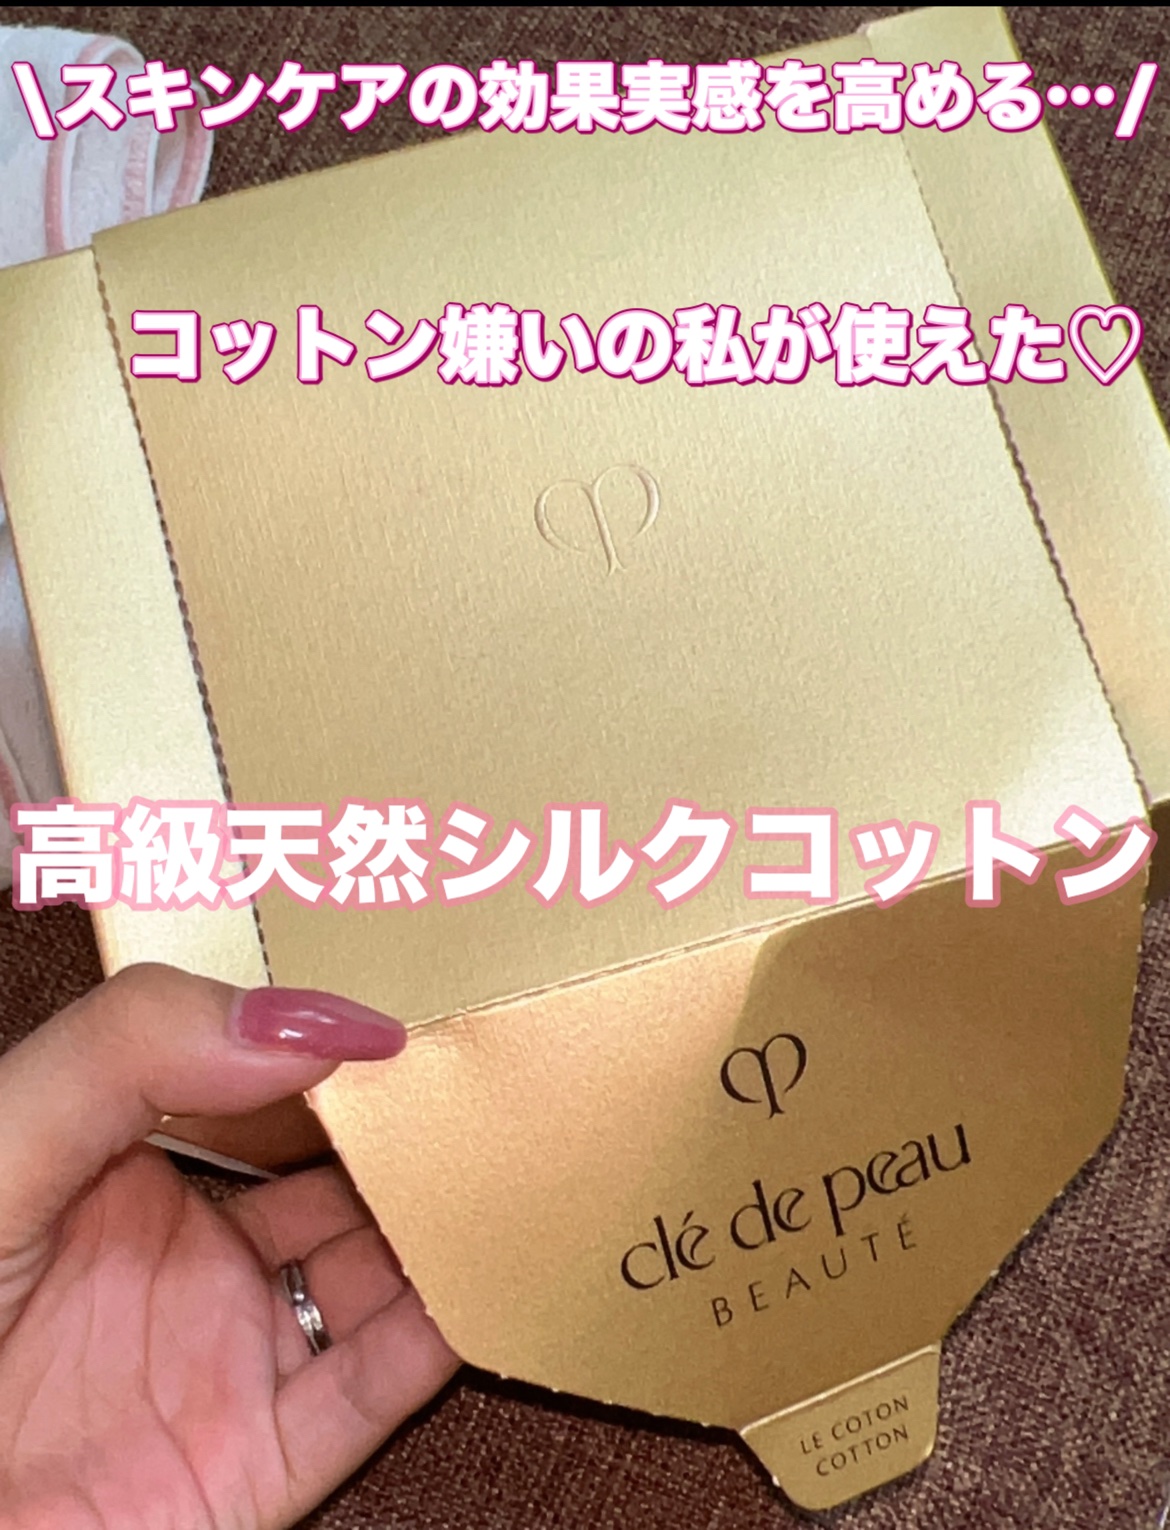 \スキンケアの効果実感を高める…/
コットン嫌いの私が使えた♡
高級天然シルクコットン
clé de peau
BEAUTÉ
LE COTON
COTTON